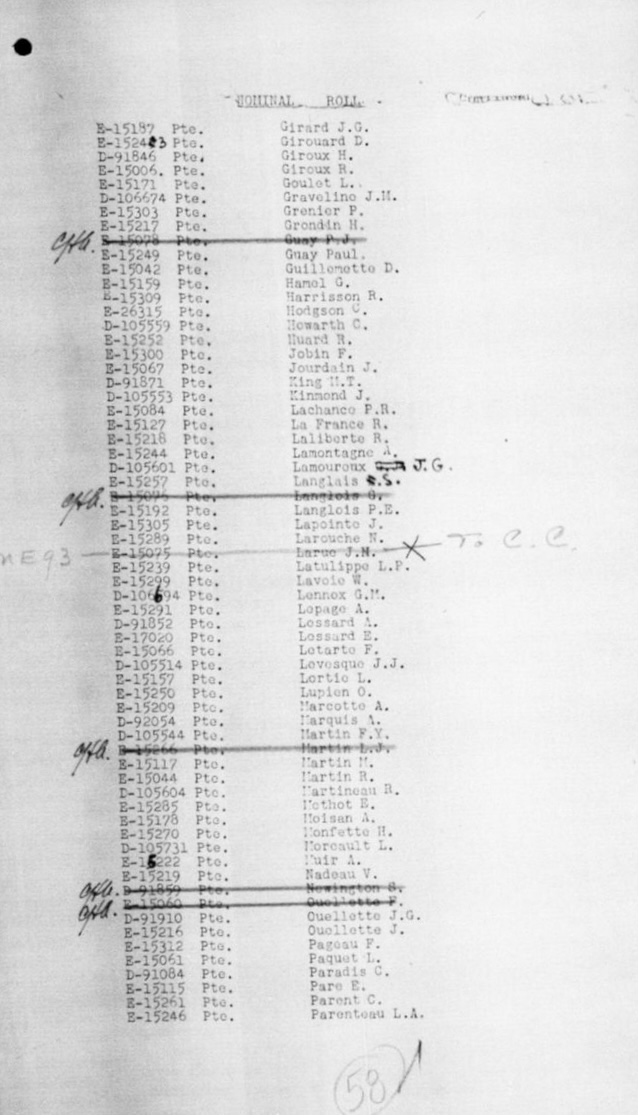 NOMINAL ROLL -
E-15187 Pte. Girard J.G.
E-15243 Pte. Girouard D.
D-91846 Pte. Giroux H.
E-15006. Pte. Giroux R.
E-15171 Pte. Goulet L.
D-106674 Pte. Graveline J.M.
E-15303 Pte. Grenier P.
E-15217 Pte. Grondin H.
E-15078 Pte. Guay P.J.
E-15249 Pte. Guay Paul.
E-15042 Pte. Guillemette D.
E-15159 Pte. Hamel G.
E-15309 Pte. Harrisson R.
E-26315 Pte. Hodgson C.
D-105559 Pte. Howarth C.
E-15252 Pte. Huard R.
E-15300 Pte. Jobin F.
E-15067 Pte. Jourdain J.
D-91871 Pte. King M.T.
D-105553 Pte. Kinmond J.
E-15084 Pte. Lachance P.R.
E-15127 Pte. La France R.
E-15218 Pte. Laliberte R.
E-15244 Pte. Lamontagne A.
D-105601 Pte. Lamoureux J.G.
E-15257 Pte. Langlais S.
E-15076 Pte. Langlois G.
E-15192 Pte. Langlois P.E.
E-15305 Pte. Lapointe J.
E-15289 Pte. Larouche N.
E-15075 Pte. Larue J.M. X To C.C.
E-15239 Pte. Latulippe L.P.
E-15299 Pte. Lavoie W.
D-106694 Pte. Lennox G.M.
E-15291 Pte. Lepage A.
D-91852 Pte. Lessard A.
E-17020 Pte. Lessard E.
E-15066 Pte. Letarte F.
D-105514 Pte. Levesque J.J.
E-15157 Pte. Lortie L.
E-15250 Pte. Lupien O.
E-15209 Pte. Marcotte A.
D-92054 Pte. Marquis A.
D-105544 Pte. Martin F.Y.
E-15266 Pte. Martin L.J.
E-15117 Pte. Martin M.
E-15044 Pte. Martin R.
D-105604 Pte. Martineau R.
E-15285 Pte. Methot E.
E-15178 Pte. Moisan A.
E-15270 Pte. Monfette H.
D-105731 Pte. Moreault L.
E-15222 Pte. Muir A.
E-15219 Pte. Nadeau V.
D-91859 Pte. Newington S.
E-15060 Pte. Ouellette F.
D-91910 Pte. Ouellette J.G.
E-15216 Pte. Ouellette J.
E-15312 Pte. Pageau F.
E-15061 Pte. Paquet L.
D-91084 Pte. Paradis C.
E-15115 Pte. Pare E.
E-15261 Pte. Parent C.
E-15246 Pte. Parenteau L.A.
58